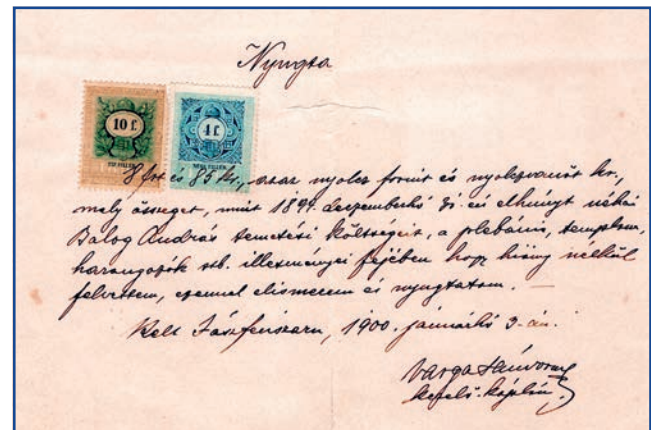 Nyugta
10 f.
TIZ FILLÉR
4 f.
NÉGY FILLÉR
8 frt és 85 kr., azaz nyolcz forint és nyolczvanöt kr.,
mely összeget, mint 1899. deczemberhó én elhúnyt néhai
Balog András temetési költségeit, a plébánia, templom,
harangozók stb. illetményei fejében hogy hiány nélkül
felvettem, ezennel elismerem és nyugtatom. —
Kelt Jászfényszaru, 1900. januárhó 3-án.
Varga
káplán